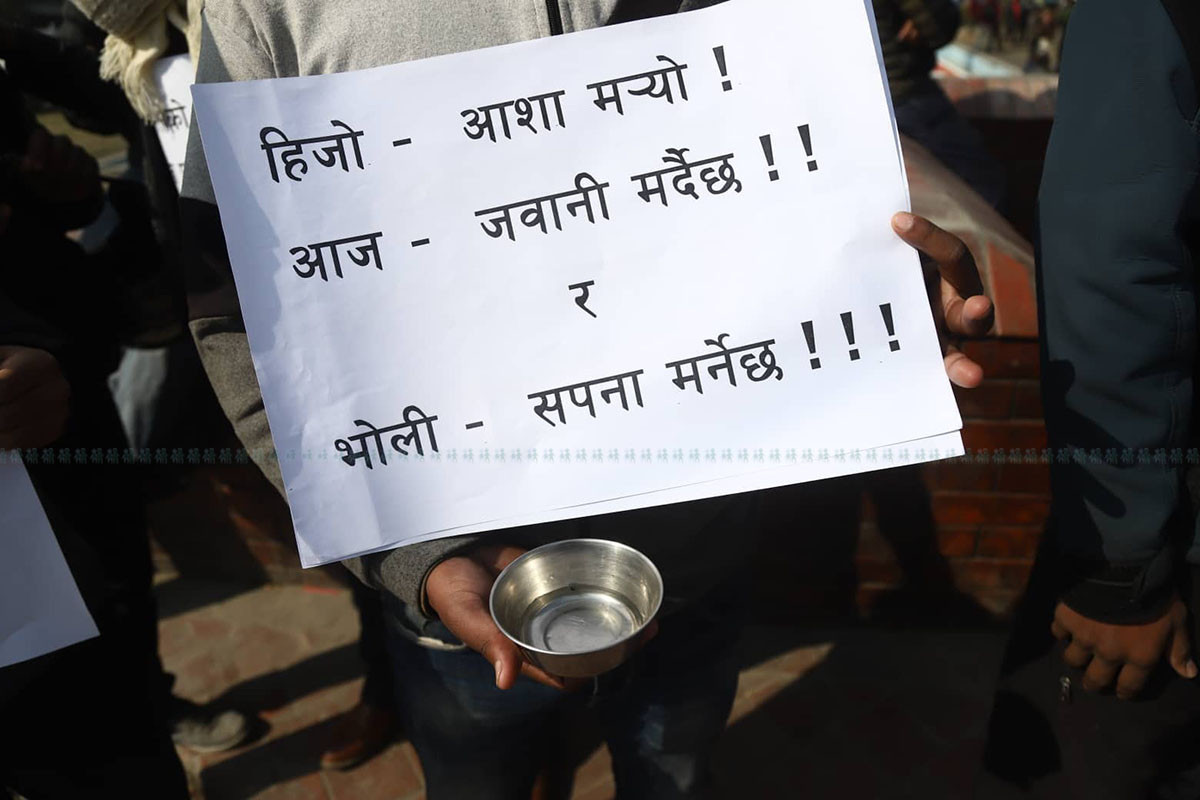 हिजो - आशा मर्‍यो !
आज - जवानी मर्दैछ ! !
र
भोली - सपना मर्नेछ ! ! !